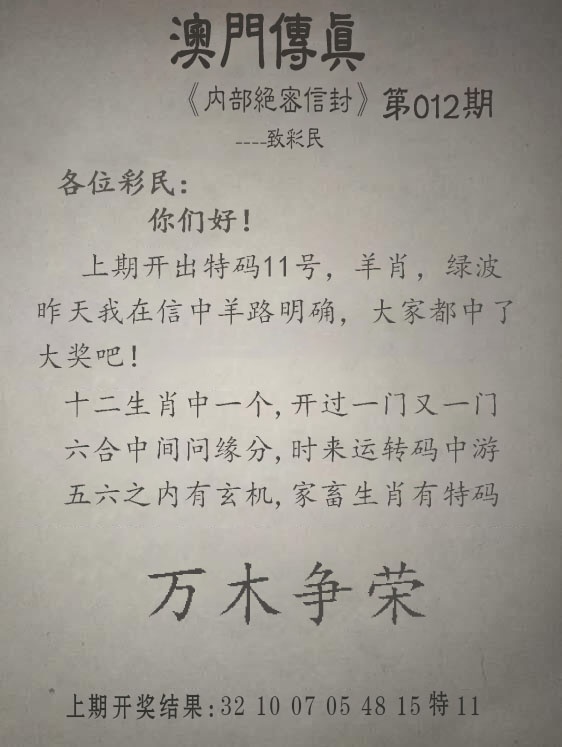 澳門傳眞
《内部絕密信封》第012期
----致彩民
各位彩民：
你们好！
上期开出特码11号，羊肖，绿波
昨天我在信中羊路明确，大家都中了
大奖吧！
十二生肖中一个,开过一门又一门
六合中间问缘分,时来运转码中游
五六之内有玄机,家畜生肖有特码
万木争荣
上期开奖结果:32 10 07 05 48 15特11